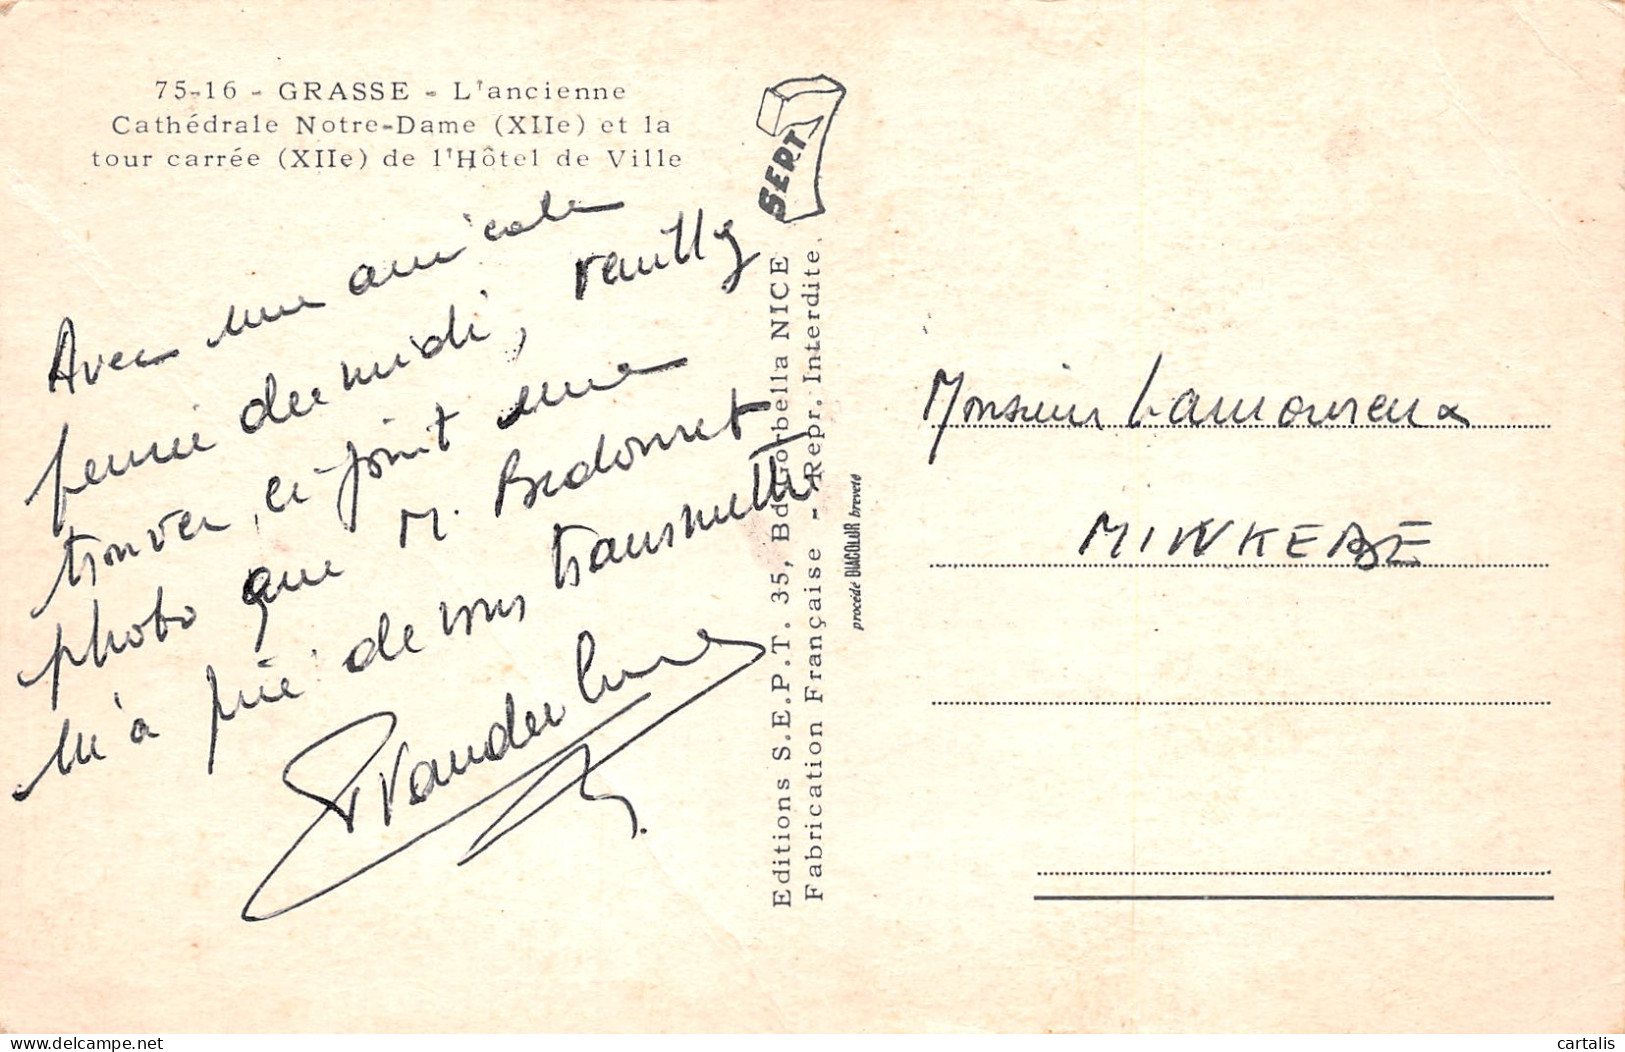 75-16 - GRASSE - L'ancienne
Cathédrale Notre-Dame (XIIe) et la
tour carrée (XIIe) de l'Hôtel de Ville
Avec une amicale
pensée du midi, veuillez
trouver, ci-joint une
photo que M. Bedonnet
m'a prié de vous transmettre
SERT
Editions S.E.P.T. 35, Bd Gorbella NICE
Fabrication Française - Repr. Interdite.
procédé DIACOLOR breveté
Monsieur Lamoureux
MINKEBE
cartalis
delcampe.net